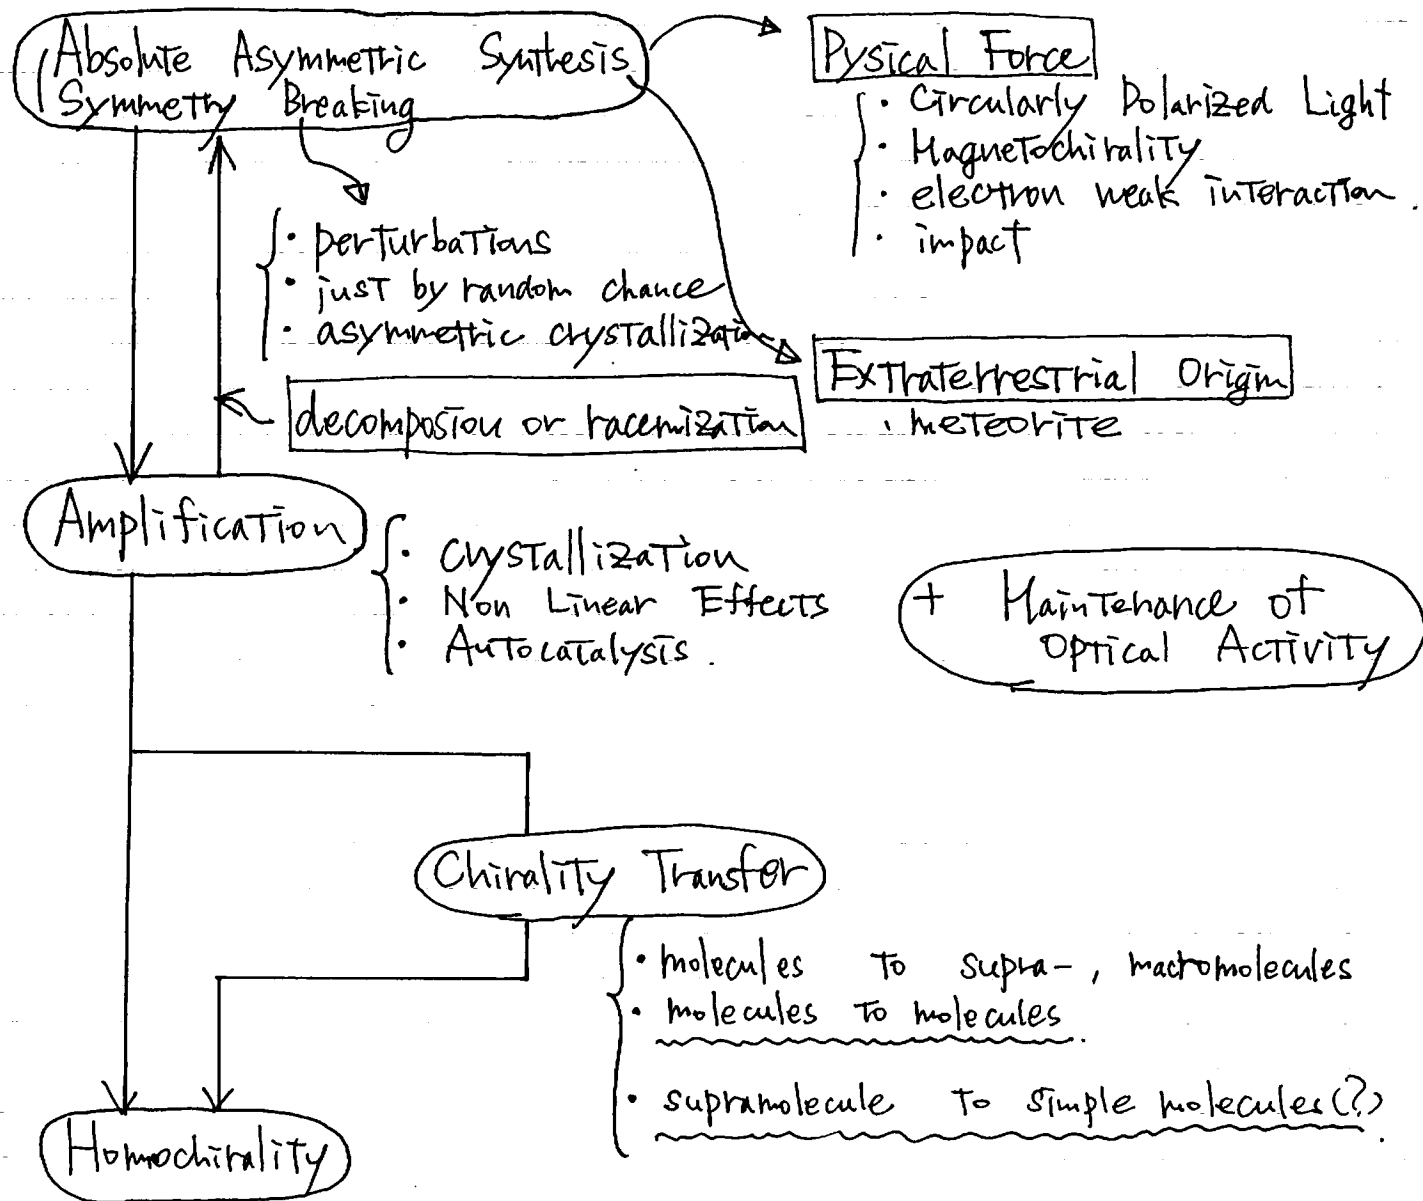 Absolute Asymmetric Synthesis
Symmetry Breaking
Pysical Force
· Circularly Polarized Light
· Magnetochirality
· electron weak interaction.
· impact
· perturbations
· just by random chance
· asymmetric crystallization
Extraterrestrial Origin
· meteorite
decomposion or racemization
Amplification
· crystallization
· Non Linear Effects
· Autocatalysis.
+ Maintenance of
Optical Activity
Chirality Transfer
· molecules to supra-, macromolecules
· molecules to molecules.
· supramolecule to simple molecules(?).
Homochirality